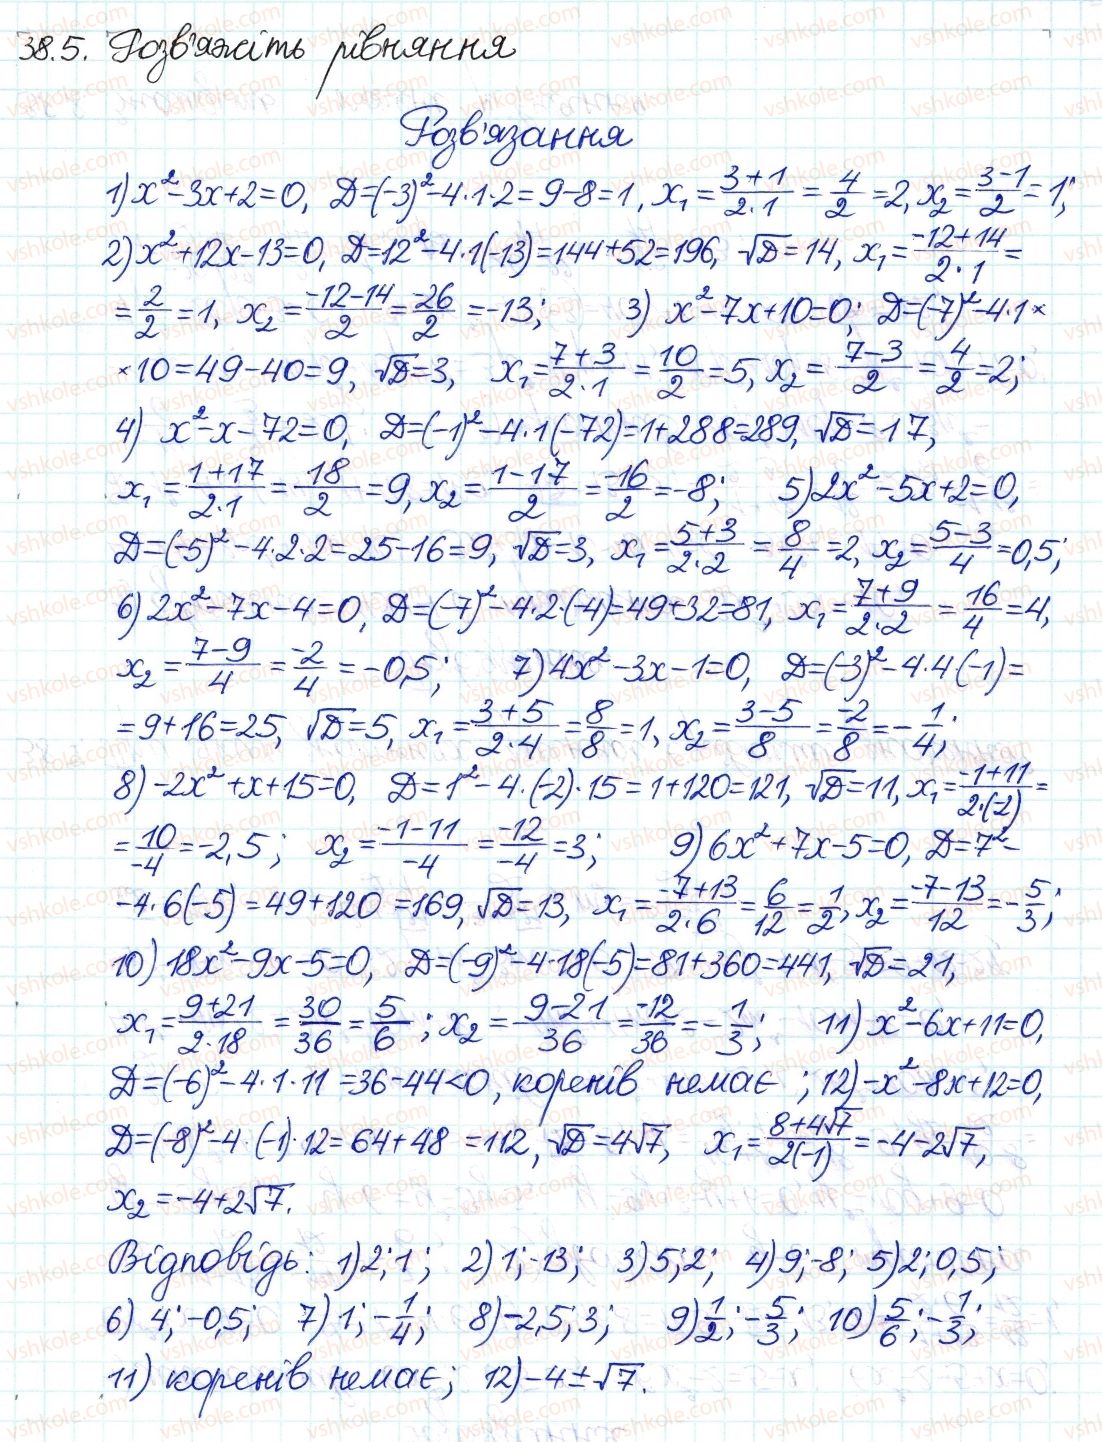 38.5. Розв'яжіть рівняння
Розв'язання
1) x²-3x+2=0, Д=(-3)²-4·1·2=9-8=1, x₁=(3+1)/(2·1)=4/2=2, x₂=(3-1)/2=1;
2) x²+12x-13=0, Д=12²-4·1(-13)=144+52=196, √Д=14, x₁=(-12+14)/(2·1)=
=2/2=1, x₂=(-12-14)/2=-26/2=-13; 3) x²-7x+10=0; Д=(-7)²-4·1×
×10=49-40=9, √Д=3, x₁=(7+3)/(2·1)=10/2=5, x₂=(7-3)/2=4/2=2;
4) x²-x-72=0, Д=(-1)²-4·1(-72)=1+288=289, √Д=17,
x₁=(1+17)/(2·1)=18/2=9, x₂=(1-17)/2=-16/2=-8; 5) 2x²-5x+2=0,
Д=(-5)²-4·2·2=25-16=9, √Д=3, x₁=(5+3)/(2·2)=8/4=2, x₂=(5-3)/4=0,5;
6) 2x²-7x-4=0, Д=(-7)²-4·2·(-4)=49+32=81, x₁=(7+9)/(2·2)=16/4=4,
x₂=(7-9)/4=-2/4=-0,5; 7) 4x²-3x-1=0, Д=(-3)²-4·4(-1)=
=9+16=25, √Д=5, x₁=(3+5)/(2·4)=8/8=1, x₂=(3-5)/8=-2/8=-1/4;
8) -2x²+x+15=0, Д=1²-4·(-2)·15=1+120=121, √Д=11, x₁=(-1+11)/(2·(-2))=
=10/-4=-2,5; x₂=(-1-11)/-4=-12/-4=3; 9) 6x²+7x-5=0, Д=7²-
-4·6(-5)=49+120=169, √Д=13, x₁=(-7+13)/(2·6)=6/12=1/2, x₂=(-7-13)/12=-5/3;
10) 18x²-9x-5=0, Д=(-9)²-4·18(-5)=81+360=441, √Д=21,
x₁=(9+21)/(2·18)=30/36=5/6; x₂=(9-21)/36=-12/36=-1/3; 11) x²-6x+11=0,
Д=(-6)²-4·1·11=36-44<0, коренів немає; 12) -x²-8x+12=0,
Д=(-8)²-4·(-1)·12=64+48=112, √Д=4√7, x₁=(8+4√7)/(2(-1))=-4-2√7,
x₂=-4+2√7.
Відповідь: 1) 2; 1; 2) 1; -13; 3) 5; 2; 4) 9; -8; 5) 2; 0,5;
6) 4; -0,5; 7) 1; -1/4; 8) -2,5; 3; 9) 1/2; -5/3; 10) 5/6; -1/3;
11) коренів немає; 12) -4±√7.